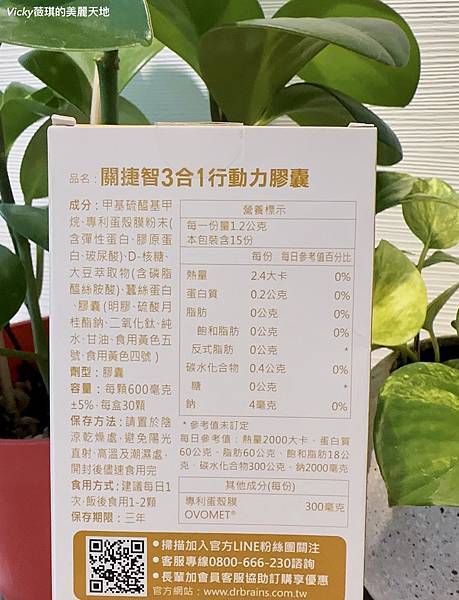 Vicky薇琪的美麗天地
品名：關捷智3合1行動力膠囊
成分：甲基硫醯基甲
烷、專利蛋殼膜粉末(
含彈性蛋白、膠原蛋
白、玻尿酸)、D-核糖、
大豆萃取物(含磷脂
醯絲胺酸)、蠶絲蛋白
、膠囊(明膠、硫酸月
桂酯鈉、二氧化鈦、純
水、甘油、食用黃色五
號、食用黃色四號)
劑型：膠囊
容量：每顆600毫克
±5%，每盒30顆
保存方法：請置於陰
涼乾燥處，避免陽光
直射、高溫及潮濕處，
開封後儘速食用完
食用方式：建議每日1
次，飯後食用1-2顆
保存期限：三年
營養標示
每一份量1.2公克
本包裝含15份
每份 每日參考值百分比
熱量 2.4大卡 0%
蛋白質 0.2公克 0%
脂肪 0公克 0%
飽和脂肪 0公克 0%
反式脂肪 0公克 *
碳水化合物 0.4公克 0%
糖 0公克 *
鈉 4毫克 0%
* 參考值未訂定
每日參考值：熱量2000大卡、蛋白質
60公克、脂肪60公克、飽和脂肪18公
克、碳水化合物300公克、鈉2000毫克
其他成分(每份)
專利蛋殼膜 300毫克
OVOMET®
●掃描加入官方LINE粉絲團關注
●客服專線0800-666-230諮詢
●長輩加會員客服協助訂購享優惠
官方網站：www.drbrains.com.tw